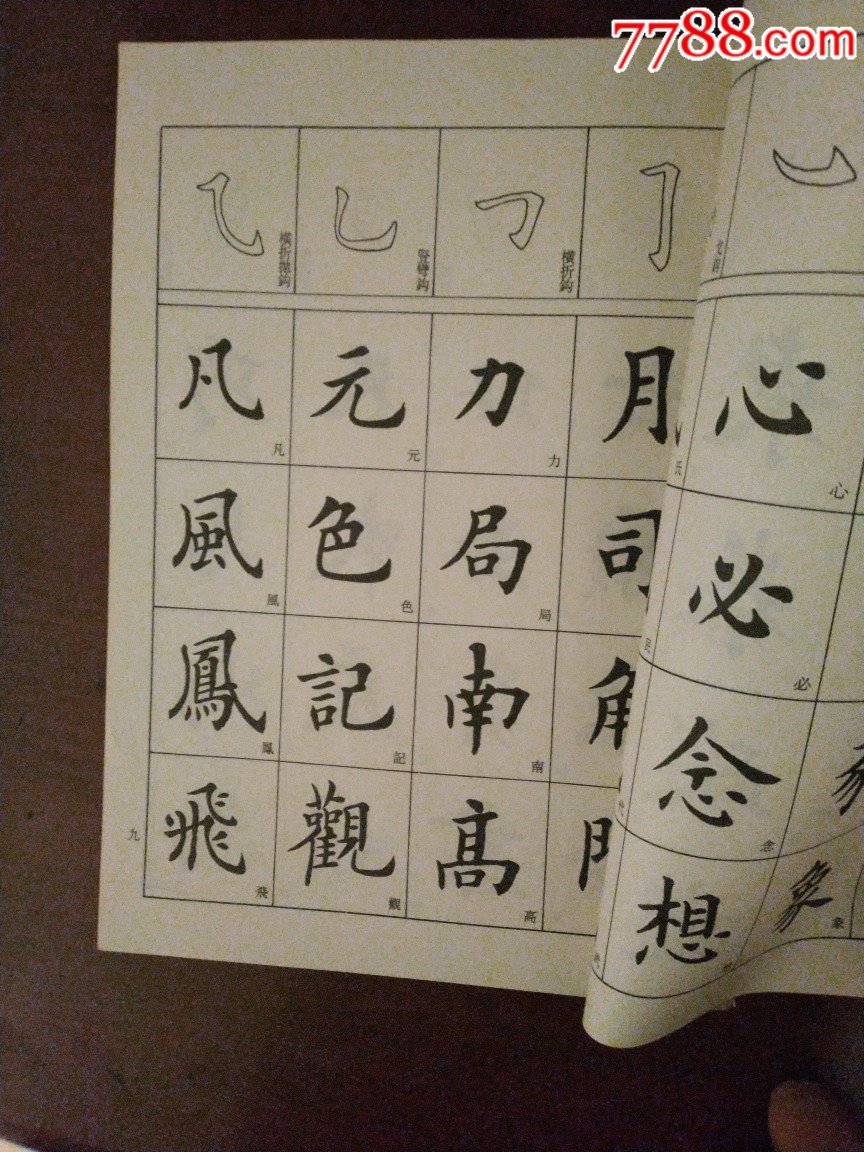 7788.com
橫折抛鈎 豎彎鈎 橫折鈎
凡 元 力 月 心
凡 元 力 心
風 色 局 司 必
風 色 局 必
鳳 記 南 角 念
鳳 記 南 念
飛 觀 高 門 想 象
飛 觀 高 象
九